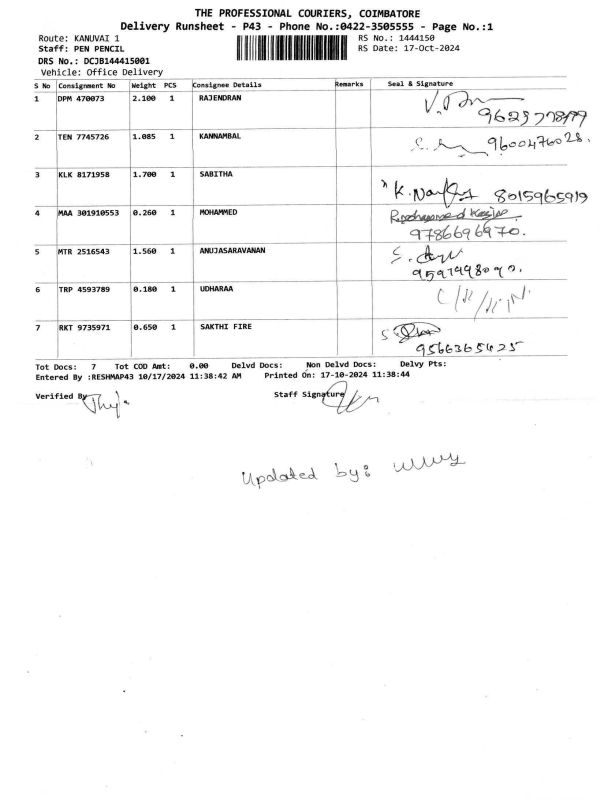 THE PROFESSIONAL COURIERS, COIMBATORE
Delivery Runsheet - P43 - Phone No.:0422-3505555 - Page No.:1
Route: KANUVAI 1 RS No.: 1444150
Staff: PEN PENCIL RS Date: 17-Oct-2024
DRS No.: DCJB144415001
Vehicle: Office Delivery
S No Consignment No Weight PCS Consignee Details Remarks Seal & Signature
1 DPM 470073 2.100 1 RAJENDRAN
2 TEN 7745726 1.085 1 KANNAMBAL 9600476028.
3 KLK 8171958 1.700 1 SABITHA 8015965919
4 MAA 301910553 0.260 1 MOHAMMED
9786696970.
5 MTR 2516543 1.560 1 ANUJASARAVANAN
6 TRP 4593789 0.180 1 UDHARAA
7 RKT 9735971 0.650 1 SAKTHI FIRE
9566365425
Tot Docs: 7 Tot COD Amt: 0.00 Delvd Docs: Non Delvd Docs: Delvy Pts:
Entered By :RESHMAP43 10/17/2024 11:38:42 AM Printed On: 17-10-2024 11:38:44
Verified By Staff Signature
Updated by: